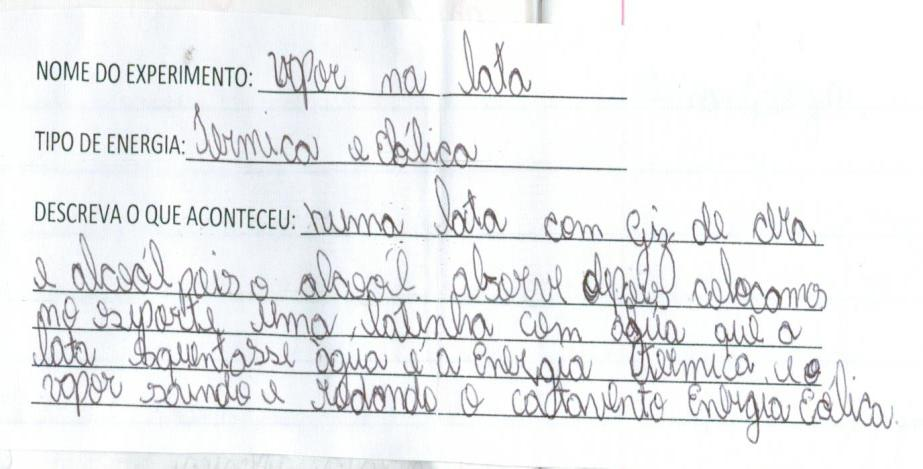 NOME DO EXPERIMENTO: vapor na lata
TIPO DE ENERGIA: Térmica e eólica
DESCREVA O QUE ACONTECEU: numa lata com giz de
e alcoól pois o alcool absorve depois colocamos
no suporte uma latinha com água que a
lata aquentasse água é a Energia térmica, e o
vapor saindo e rodando o catavento Energia Eólica.